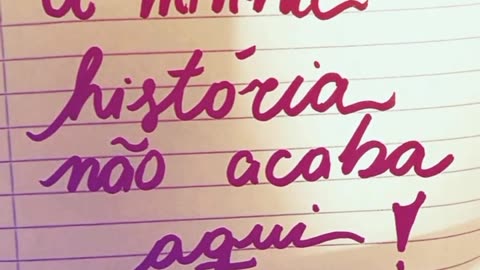 a minha
história
não acaba
aqui!